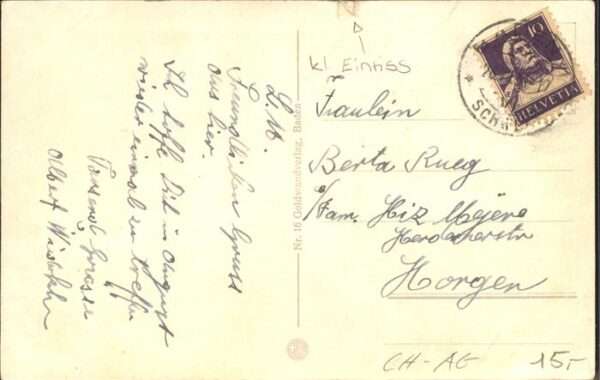 L. B.
Freundlichen Gruss
aus hier.
Ich hoffe Dich im August
wieder einmal zu treffen
Tausend Grüsse
Albert
Nr. 16 Goldwandverlag, Baden
kl Einriss
Fräulein
Berta Rueg
c/Fam. Hiz Mejere
Horgen
10
HELVETIA
CH-AG 15,-